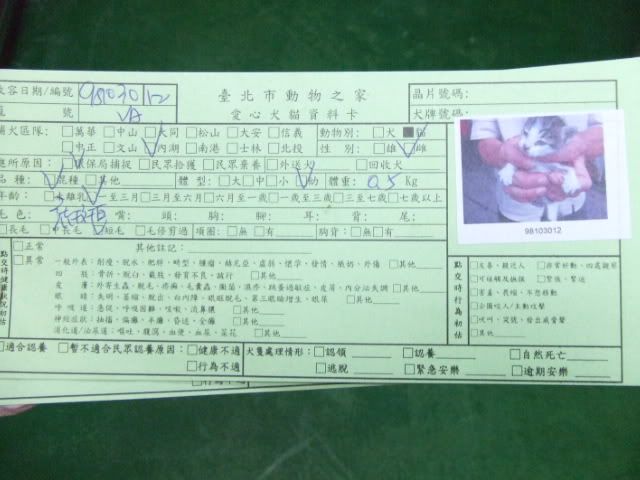 收容日期/編號 981030 12 臺北市動物之家 晶片號碼：
號 VA 愛心犬貓資料卡 犬牌號碼：
捕犬區隊：□萬華 □中山 □大同 □松山 □大安 □信義 動物別：□犬 ■貓
□中正 □文山 □內湖 □南港 □士林 □北投 性別：□雄 □雌
處所原因：□環保局捕捉 □民眾拾獲 □民眾棄養 □外送犬 □回收犬
品種：□混種 □其他 體型：□大 □中 □小 □幼 體重：0.5 Kg
年齡：□未離乳 □一至三月 □三月至六月 □六月至一歲 □一至三歲 □三至七歲 □七歲以上
毛色： 嘴： 頭： 胸： 腳： 耳： 背： 尾：
□長毛 □短毛 □毛修剪過 項圈：□無 □有 胸背：□無 □有
98103012
點交時健康狀況初估
□正常 其他註記：
□異常 一般外表：削瘦、脫水、肥胖、畸型、腫瘤、赫尼亞、虛弱、懷孕、發情、紙奶、外傷 □其他
四肢：骨折、脫臼、截肢、發育不良、跛行 □其他
皮膚：外寄生蟲、脫毛、疥癬、毛囊蟲、黴菌、濕疹、跳蚤過敏症、皮屑、內分泌失調 □其他
眼睛：失明、萎縮、脫出、白內障、眼瞼脫毛、第三眼瞼增生、眼屎 □其他
呼吸道：急促、呼吸困難、咳嗽、流鼻膿 □其他
神經症狀：抽搐、偏癱、半癱、昏迷、全癱 □其他
消化道/泌尿道：嘔吐、腹瀉、血便、血尿、菜花 □其他
點交時行為初估
□友善、親近人 □非常好動、四處觀察
□可碰觸及撫摸 □緊張、緊迫
□害羞、畏縮、不想移動
□企圖咬人/主動攻擊
□吠叫、哭號、發出威脅聲
□其他
□適合認養 □暫不適合民眾認養原因：□健康不適 犬隻處理情形：□認領 □認養 □自然死亡
□行為不適 □逃脫 □緊急安樂 □逾期安樂
□行為不適